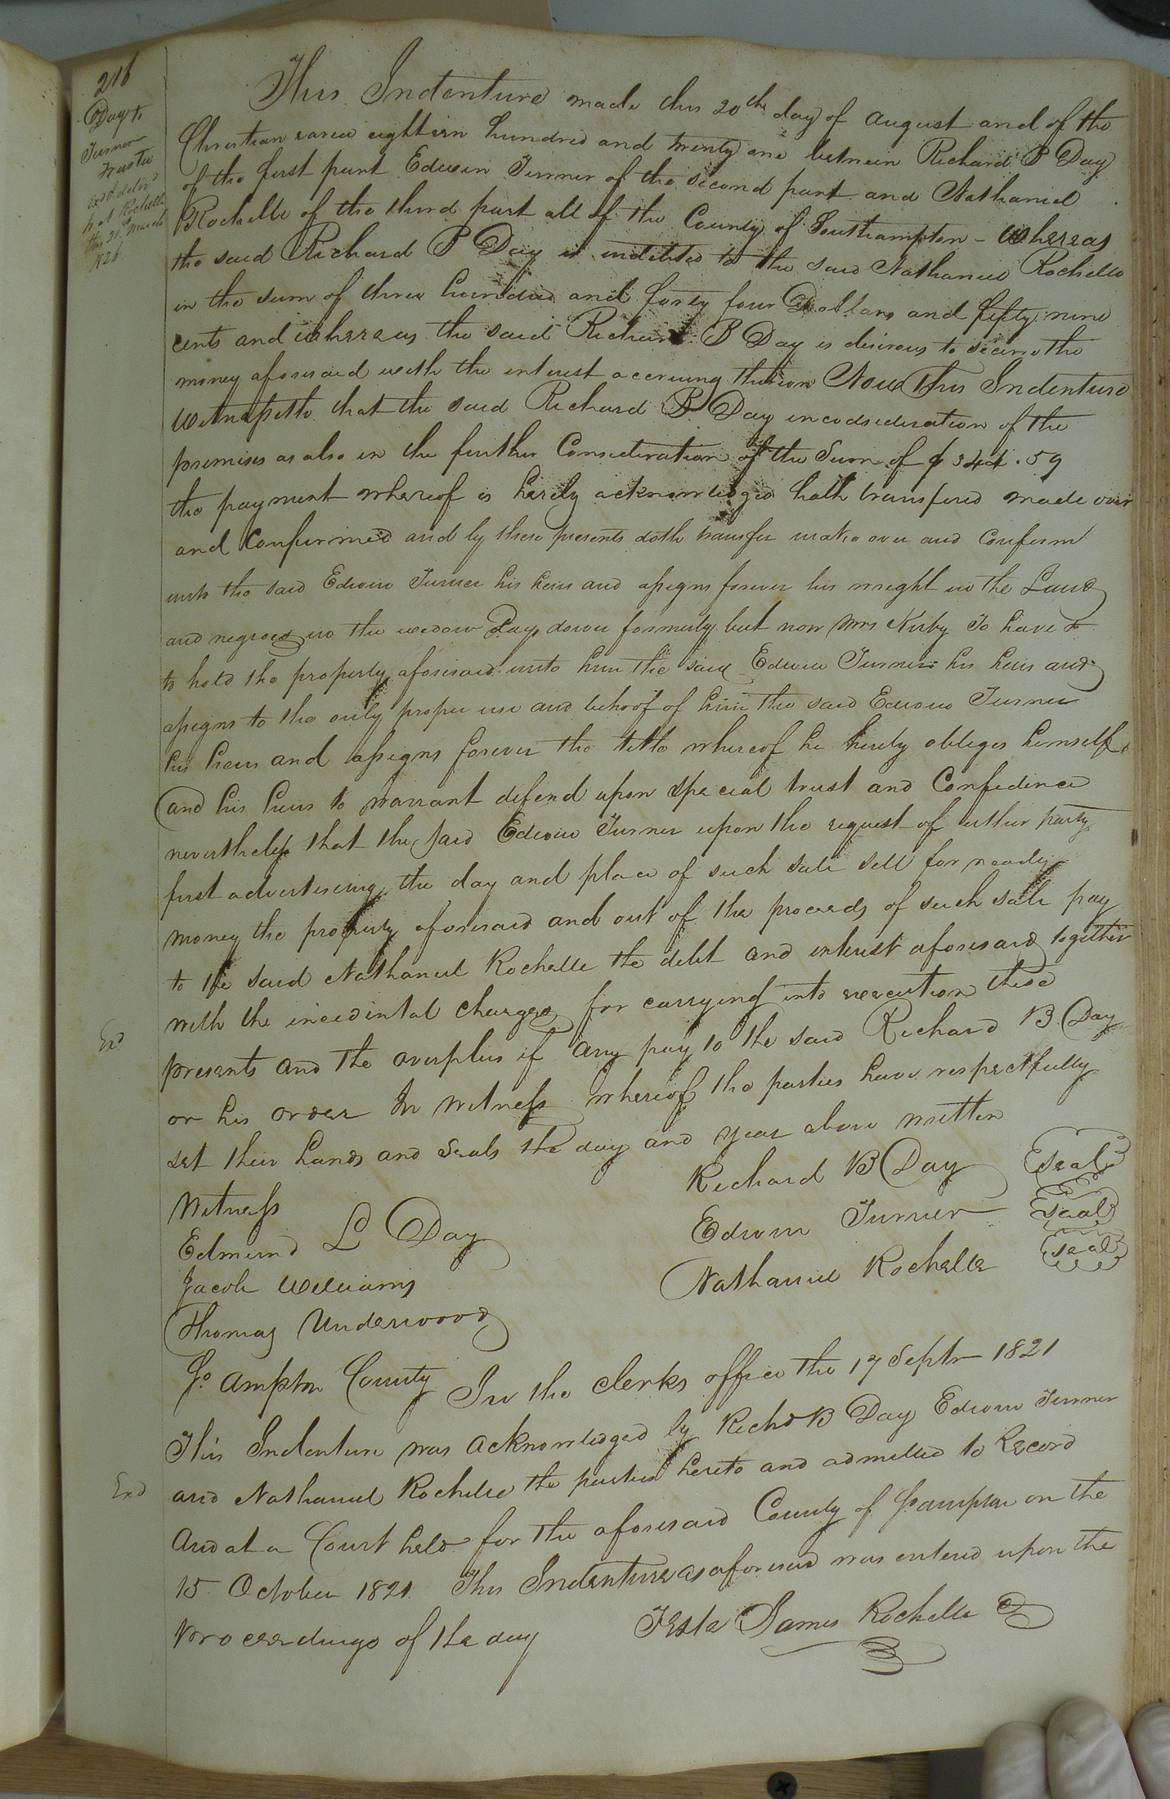 216
Day to
Turner
Trustee
exd & delivd
to N Rochelle
the 21 March
1826
This Indenture made this 20th day of August and of the
Christian earea eighteen hundred and twenty one between Richard B Day
of the first part Edwin Turner of the second part and Nathaniel
Rochelle of the third part all of the County of Southampton - Whereas
the said Richard B Day is indebted to the said Nathaniel Rochelle
in the sum of three hundred and forty four Dollars and fifty nine
cents and whereas the said Richard B Day is desirous to secure the
money aforesaid with the interest accruing thereon Now This Indenture
Witnesseth that the said Richard B Day in codsideration of the
premises as also in the further Consideration of the Sum of $ 344.59
the payment whereof is hereby acknowledged hath transfered made over
and Confirmed and by these presents doth transfer make over and Confirm
unto the said Edwin Turner his heirs and assigns forever his wright in the Land
and negroes in the widow Days dower formerly but now Mrs Kirby To have &
to hold the property aforesaid unto him the said Edwin Turner his heirs and
assigns to the only proper use and behoof of him the said Edwin Turner
his heirs and assigns forever the title whereof he hereby obliges himself
and his heirs to warrant defend upon special trust and Confidence
nevertheless that the said Edwin Turner upon the request of either party
first advertiseing the day and place of such sale sell for ready
money the property aforesaid and out of the proceeds of such sale pay
to the said Nathaniel Rochelle the debt and interest aforesaid together
with the incidental charges for carrying into execution these
Exd
presents and the overplus if any pay to the said Richard B Day
or his order In Witness whereof the parties have respectfully
set their hands and seals the day and year above written
Witness
Richard B Day seal
Edmund L Day
Edwin Turner seal
Jacob Williams
Nathaniel Rochelle seal
Thomas Underwood
So ampton County In the clerks office the 17 Septr 1821
This Indenture was acknowledged by Richd B Day Edwin Turner
and Nathaniel Rochelle the parties hereto and admitted to Record
Exd
And at a Court held for the aforesaid County of Sampton on the
15 October 1821 This Indenture as aforesaid was entered upon the
Proceedings of the day
Teste James Rochelle C